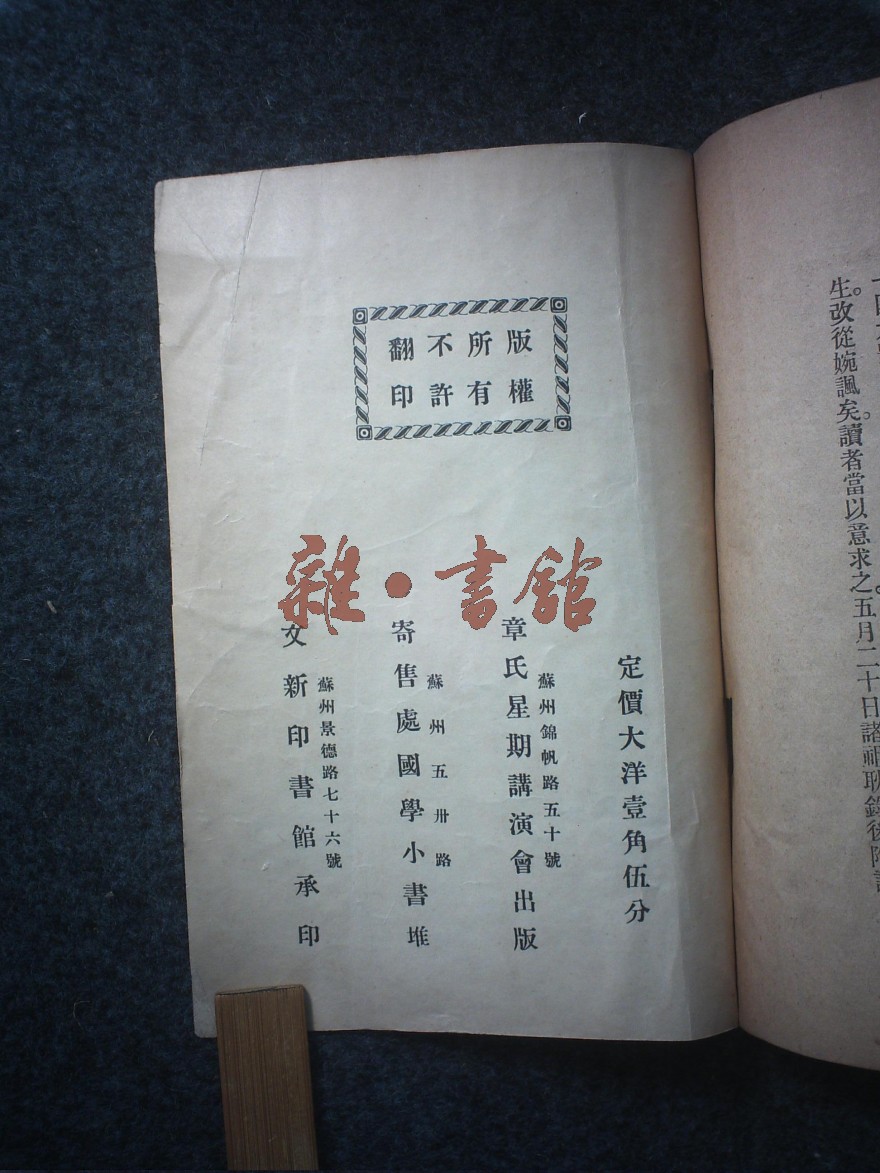 生。改從婉諷矣。讀者當以意求之。五月二十日諸祖耿錄後附記
版權
所有
不許
翻印
定價大洋壹角伍分
蘇州錦帆路五十號
章氏星期講演會出版
蘇州五卅路
寄售處國學小書堆
蘇州景德路七十六號
文新印書館承印
雜·書館